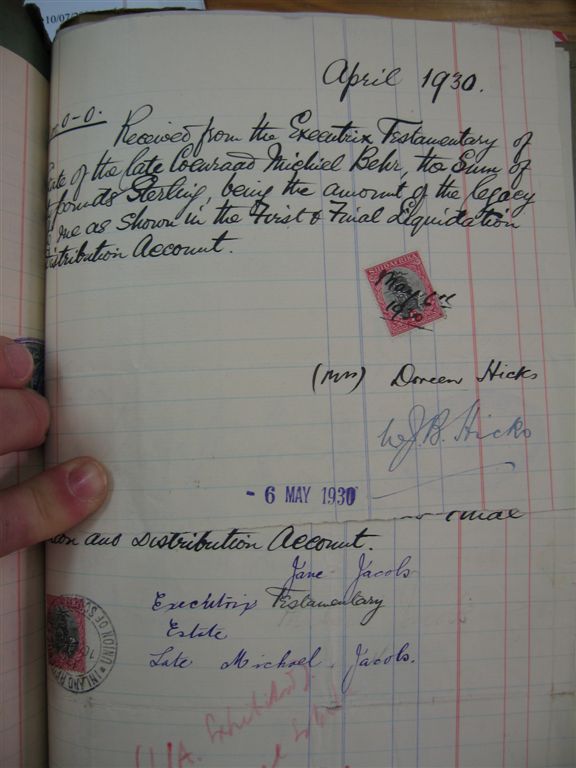 10/07/2
April 1930.
0-0.
Received from the Executrix Testamentary of
the late Coenraad Michiel Behr, the Sum of
pounds Sterling, being the amount of the legacy
due as shown in the First & Final Liquidation
Distribution Account.
SUIDAFRIKA
May 6th
1930
(Mrs) Doreen Hicks
J.B. Hicks
- 6 MAY 1930
ion and Distribution Account.
Jane Jacobs
Executrix Testamentary
Estate
Late Michael Jacobs.
UNION OF
INLAND